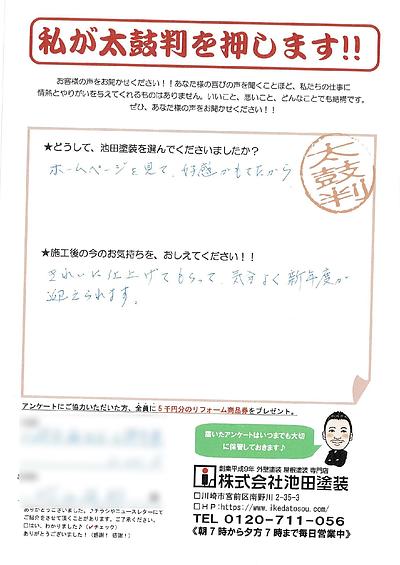 私が太鼓判を押します!!
お客様の声をお聞かせください！！あなた様の喜びの声を聞くことほど、私たちの仕事に
情熱とやりがいを与えてくれるものはありません。いいこと、悪いこと、どんなことでも結構です。
ぜひ、あなた様の声をお聞かせください！！
★どうして、池田塗装を選んでくださいましたか？
ホームページを見て、好感がもてたから
太鼓判
★施工後の今のお気持ちを、おしえてください！！
きれいに仕上げてもらって、気分よく新年度が
迎えられます。
アンケートにご協力いただいた方、全員に5千円分のリフォーム商品券をプレゼント。
届いたアンケートはいつまでも大切
に保管しておきます♪
創業平成9年 外壁塗装 屋根塗装 専門店
株式会社池田塗装
□川崎市宮前区南野川2-35-3
□HP:https://www.ikedatosou.com/
TEL 0120-711-056
《朝7時から夕方7時まで毎日営業中》
ありがとうございました。♪チラシやニュースレターにて
ご紹介をさせて頂くことがあります。ご了承ください。
□はい、わかりました♪（✓チェック）
ありがとうございました！（感謝！感謝！）